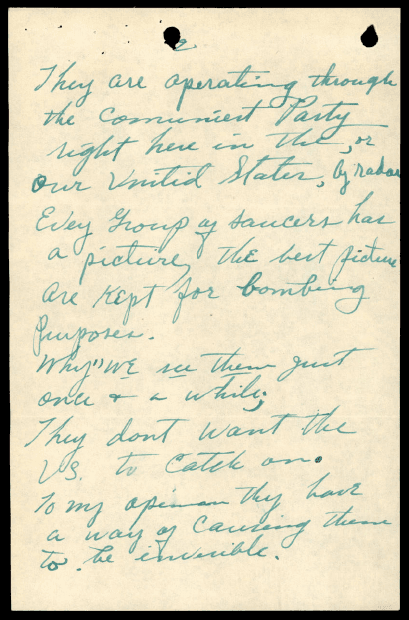 2
They are operating through
the Comuniest Party
right here in the, or
our Unitid States, By radar
Evey Group of saucers has
a picture, the best picture
are Kept for bombing
purposes.
Why "we see them just
once & a while;
They dont want the
US. to Catch on.
To my opinion they have
a way of Causing them
to be invisible.